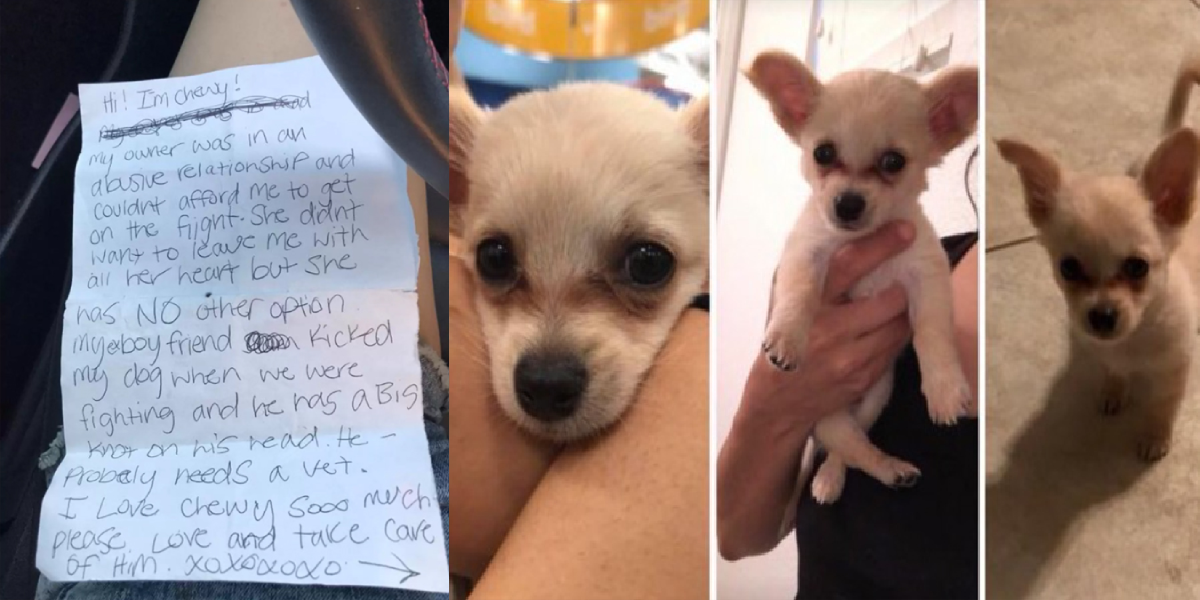 Hi! I'm chewy!
my owner was in an
abusive relationship and
couldnt afford me to get
on the flight. She didnt
want to leave me with
all her heart but she
has NO other option.
my boyfriend kicked
my dog when we were
fighting and he has a Big
knot on his head. He -
Probely needs a vet.
I Love Chewy sooo much
please love and take care
of Him. xoxoxoxo →